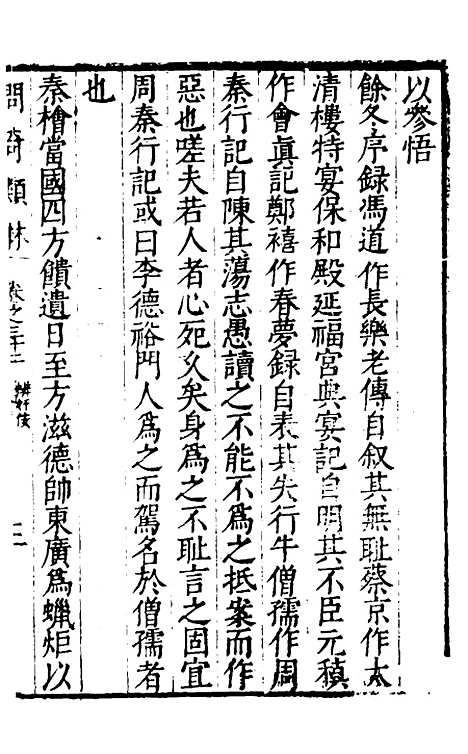 以參悟
餘冬序録馮道作長樂老傳自叙其無耻蔡京作太
清樓特宴保和殿延福宮典宴記自明其不臣元稹
作會眞記鄭禧作春夢録自表其失行牛僧孺作周
秦行記自陳其蕩志愚讀之不能不爲之抵案而作
惡也嗟夫若人者心死久矣身爲之不耻言之固宜
周秦行記或曰李德裕門人爲之而駕名於僧孺者
也
秦檜當國四方饋遺日至方滋德帥東廣爲蠟炬以
問奇類林 卷之三十二 辨奸佞 三